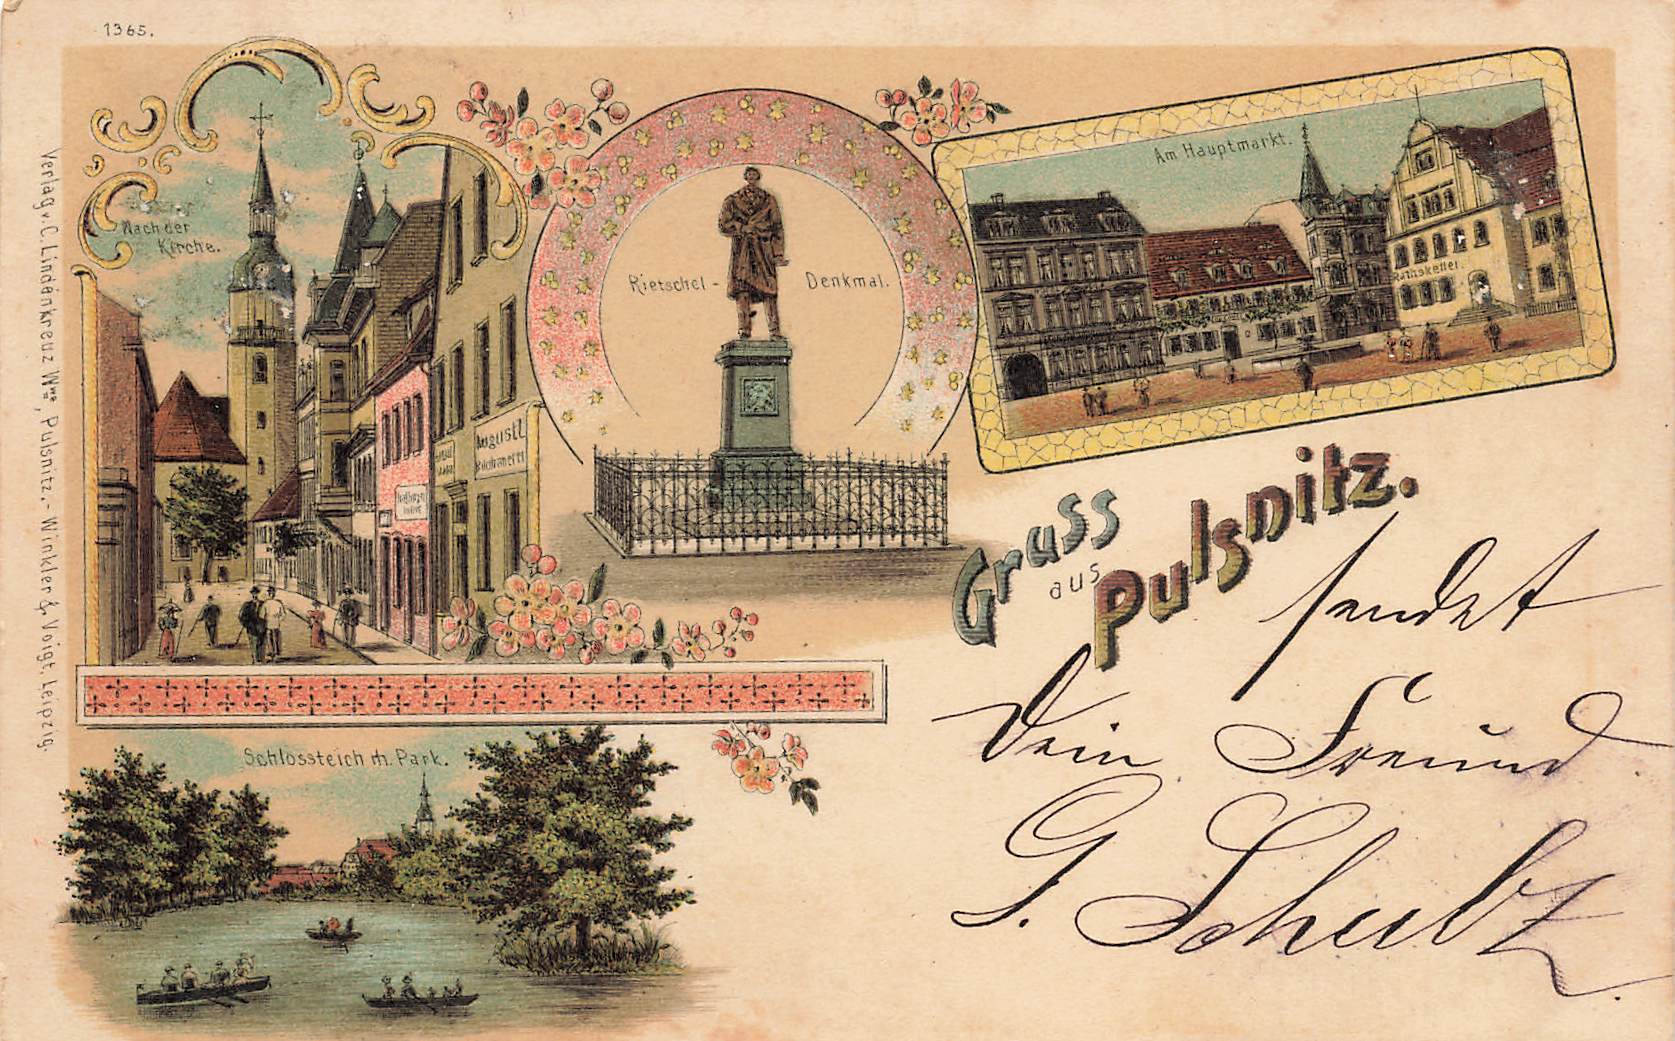 1365.
Verlag v. C. Lindenkreuz Wwe, Pulsnitz. - Winkler & Voigt, Leipzig.
Nach der
Kirche.
Rietschel - Denkmal.
Am Hauptmarkt.
Rathskeller.
Gruss
aus
Pulsnitz.
sendet
Dein Freund
G. Schulz.
Schlossteich m. Park.